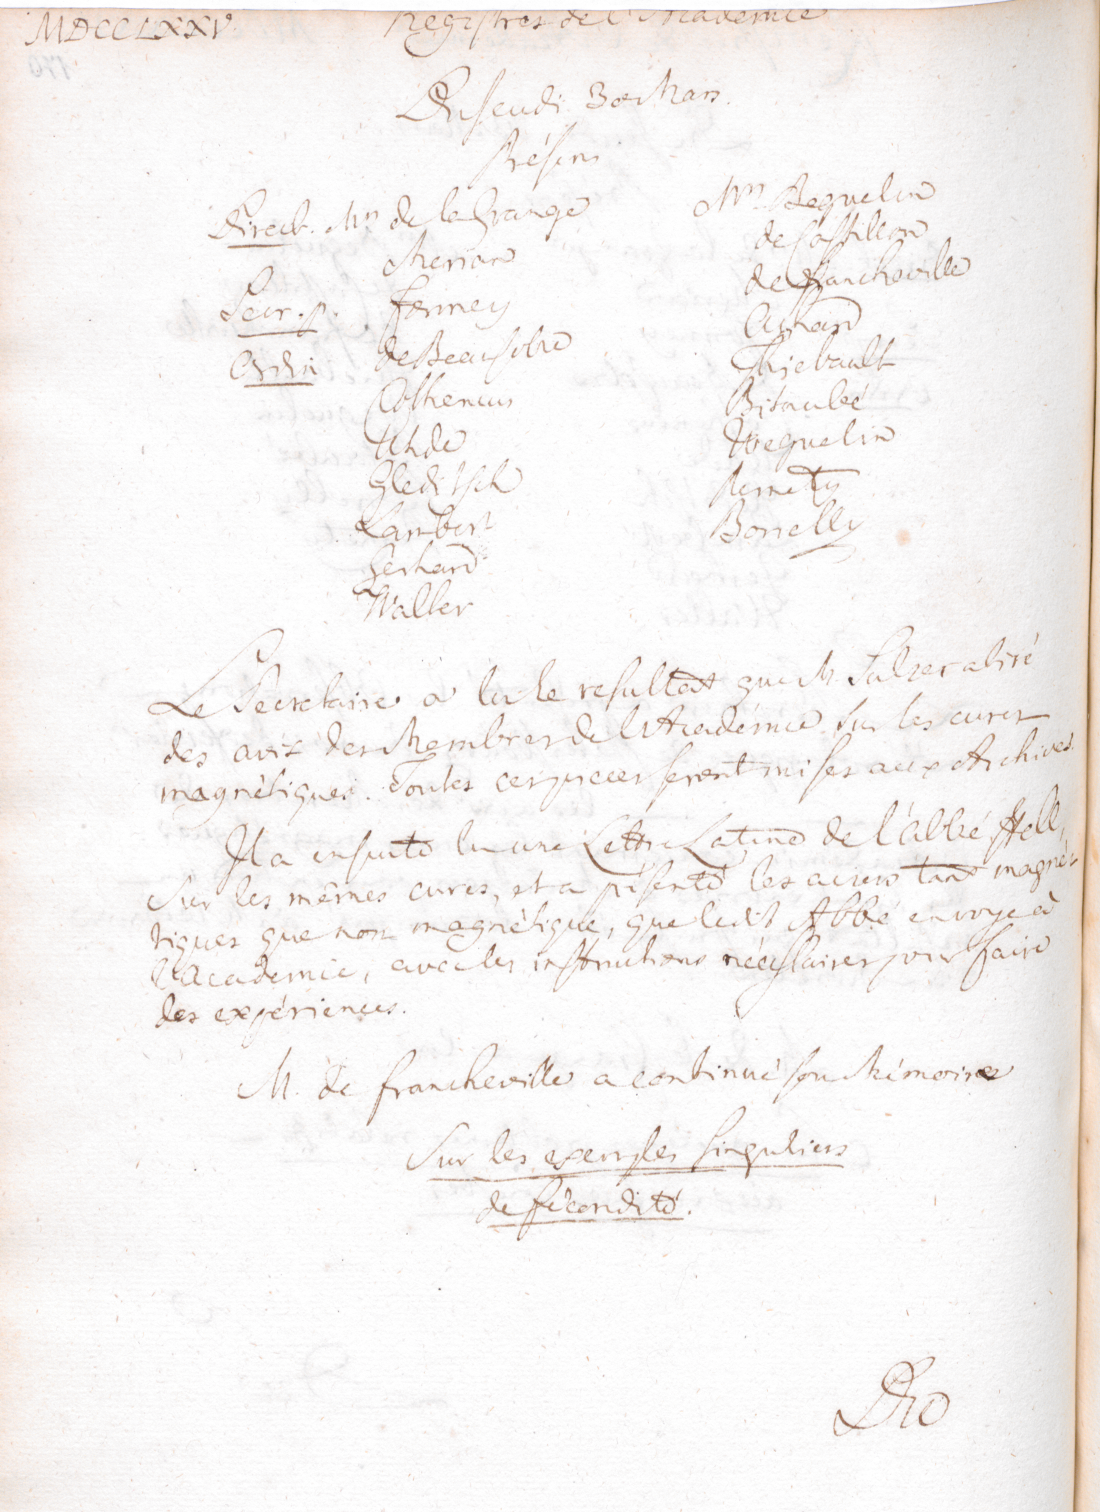 MDCCLXXV
Registres de l'Academie
Du Jeudi 30e Mars.
Présens
Direct. Mrs de la Grange
Merian
Secr. p. Formey
Ordin de Beausobre
Cothenius
Uhde
Gleditsch
Lambert
Gerhard
Walter
Mrs Beguelin
de Castillon
de Francheville
Achard
Thiebault
Bitaubé
Weguelin
Pernety
Borrelly
Le Secretaire a lu le resultat que M. Sulzer a tiré
des avis des Membres de l'Académie sur les cures
magnétiques. Toutes ces pieces seront mises aux Archives.
Il a ensuite lu une Lettre Latine de l'abbé Hell,
sur les mêmes cures, et a présenté les aciers tant magné-
tiques que non magnétique, que ledit Abbé envoye à
l'Academie, avec les instructions nécessaires pour faire
des expériences.
M. de Francheville a continué son Mémoire
Sur les exemples singuliers
de fécondité.
Du